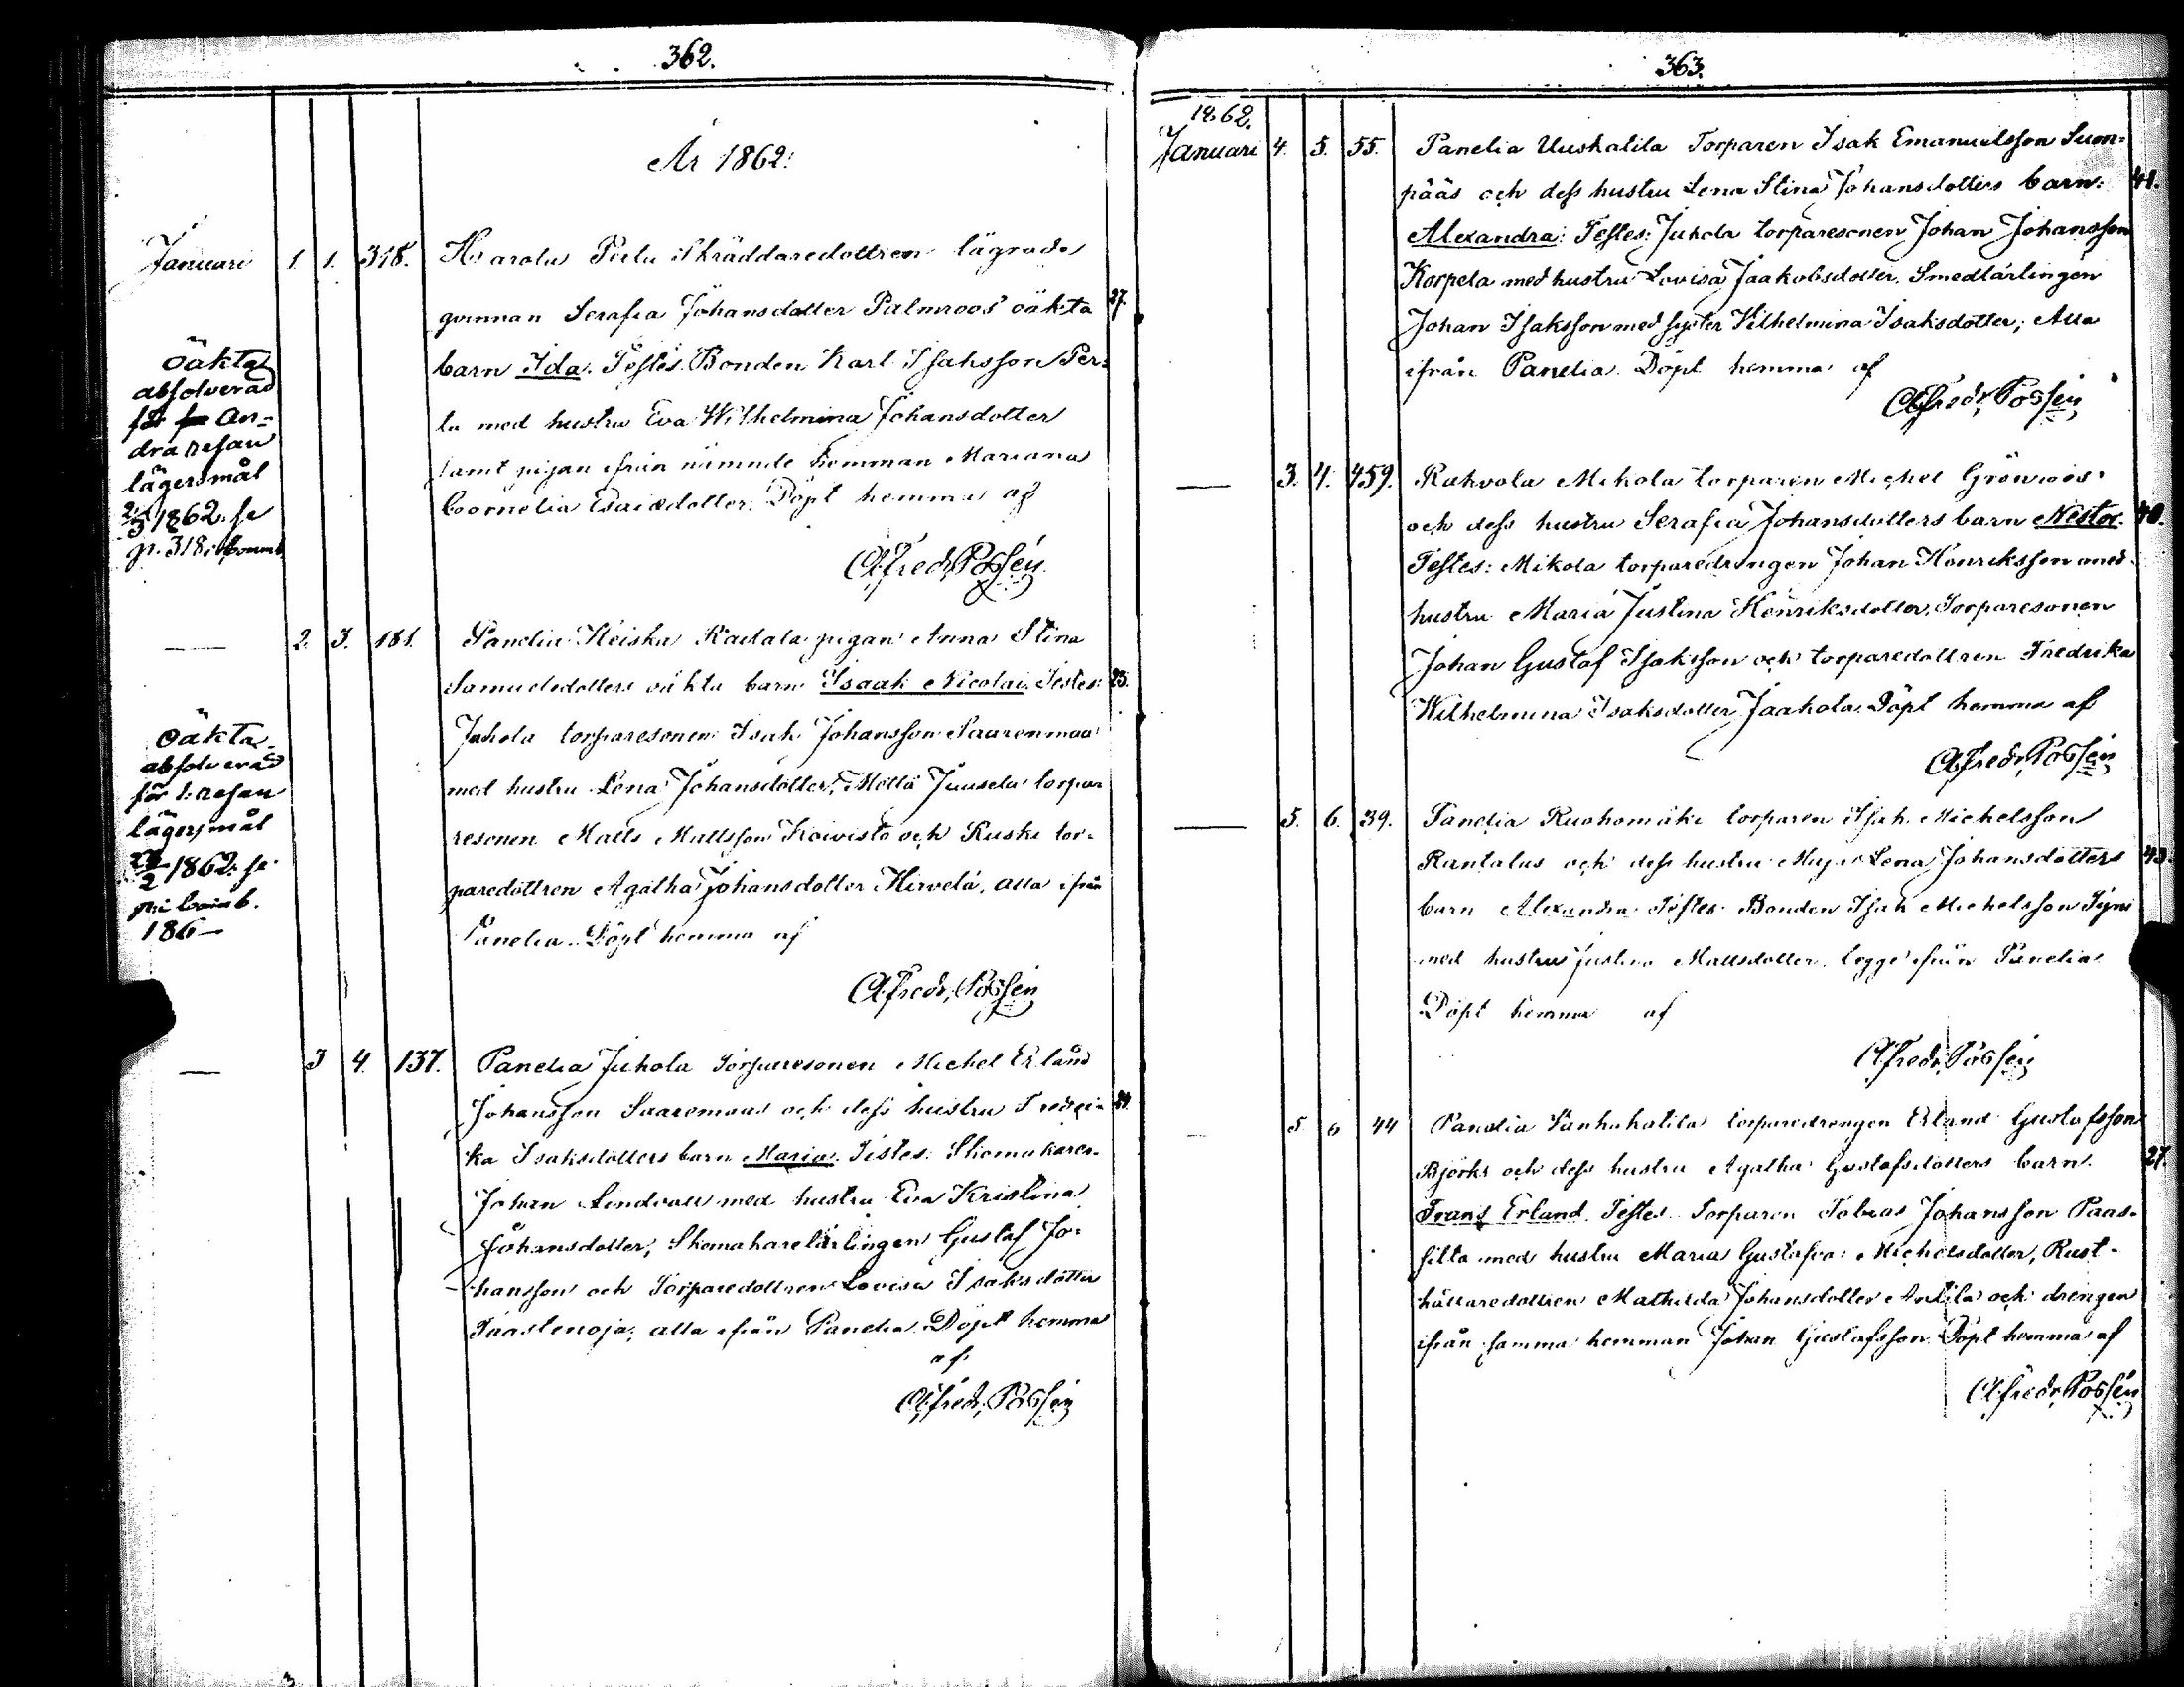 362.
År 1862:
Januari 1. 1. 318. Harola Perlu Skräddaredottren lägrade
qvinnan Serafia Johansdotter Palmroos' oäkta 27.
barn Ida. Testes. Bonden Karl Isaksson Per-
lu med hustru Eva Wilhelmina Johansdotter
samt pigan ifrån nämnde hemman Mariana
Cornelia Esaiædotter. Döpt hemma af
Alfredr, Possén
oäkta
absolverad
för an-
dra resan
lägersmål
1862. se
p. 318 i
2. 3. 181. Panelia Heiska Railala pigan Anna Stina
Samuelsdotters oäkta barn Isaak Nicolai. Testes: 25.
Juhola torparesonen Isak Johansson Saarenmaa
med hustru Lena Johansdotter, Mottä Juusela torpa-
resonen Matts Mattsson Koivisto och Ruski tor-
paredottren Agatha Johansdotter Hirvelä, alla ifrån
Panelia. Döpt hemma af
Alfredr, Possén
oäkta
absolverad
för 1. resan
lägersmål
1862. se
186
3 4. 137. Panelia Juhola Torparesonen Michel Erland
Johansson Saaremaas och dess hustru Fredri-
ka Isaksdotters barn Maria. Testes. Skomakaren
Johan Lindvall med hustru Eva Kristina
Johansdotter, Skomakarelärlingen Gustaf Jo-
hansson och Torparedottren Lovisa Isaksdotter
alla ifrån Panelia. Döpt hemma
af
Alfredr, Possén
363.
1862.
Januari 4. 5. 55. Panelia Uuskalila Torparen Isak Emanuelsson Suon-
pääs och dess hustru Lena Stina Johansdotters barn: 41.
Alexandra: Testes: Juhola torparesonen Johan Johansson
Korpela med hustru Lovisa Jaakobsdotter, Smedlärlingen
Johan Isaksson med syster Vilhelmina Isaksdotter, Alla
ifrån Panelia. Döpt hemma af
Alfredr, Possén
3. 4. 459. Rahvola Mikola torparen Michel Grönroos
och dess hustru Serafia Johansdotters barn Nestor. 40.
Testes: Mikola torparedrengen Johan Henriksson med
hustru Maria Justina Henriksdotter, Torparesonen
Johan Gustaf Isaksson och torparedottren Fredrika
Wilhelmina Isaksdotter Jaakola. Döpt hemma af
Alfredr, Possén
5. 6. 39. Panelia Ruohomäki torparen Isak Michelsson
Rantalus och dess hustru Maja Lena Johansdotters 43.
barn Alexandra. Testes. Bonden Isak Michelsson
med hustru Justina Mattsdotter. begge ifrån Panelia
Döpt hemma af
Alfredr, Possén
5 6 44 Panelia torparedrengen Erland Gustafsson
Björks och dess hustru Agatha Gustafsdotters barn. 27.
Frans Erland. Testes. Torparen Tobias Johansson Paas-
silta med hustru Maria Gustafva Michelsdotter, Rust-
hållaredottren Mathilda Johansdotter Antila och drengen
ifrån samma hemman Johan Gustafsson. Döpt hemma af
Alfredr, Possén